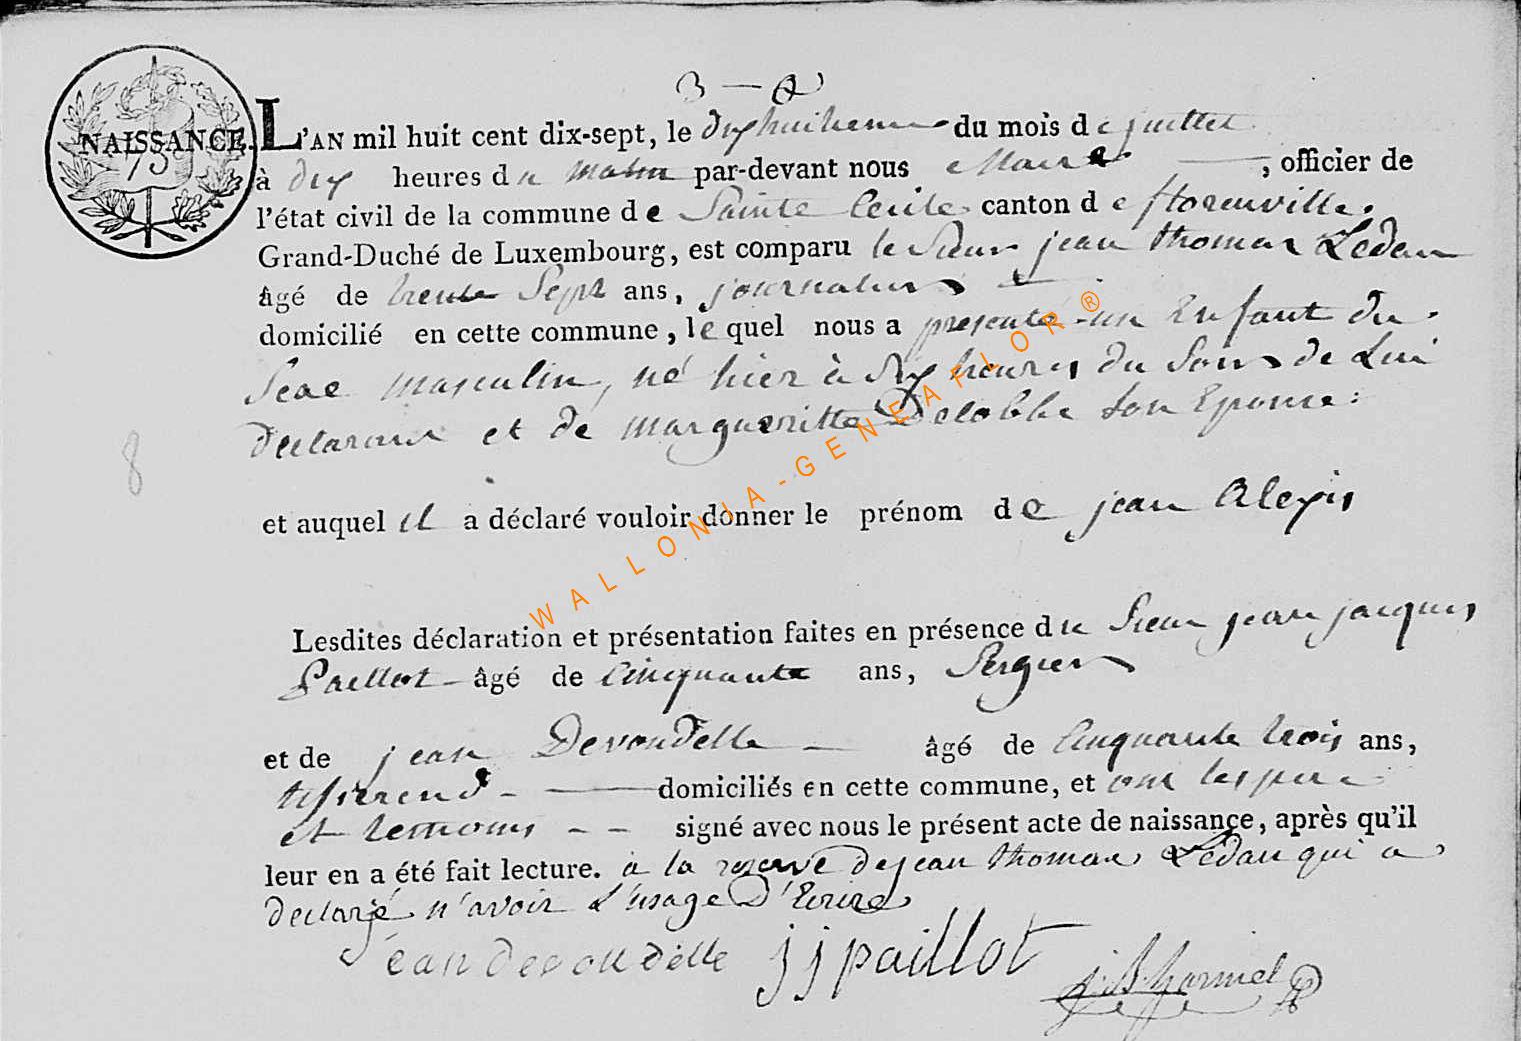 3 – 
NAISSANCE. L'AN mil huit cent dix-sept, le dixhuitieme du mois de juillet
75
à dix heures du matin par-devant nous Maire, officier de
l'état civil de la commune de Sainte Cecile canton de florenville.
Grand-Duché de Luxembourg, est comparu le Sieur jean thomas Ledan
âgé de trente Sept ans, journalier
domicilié en cette commune, lequel nous a presenté un Enfant du
Sexe masculin, né hier à dix heures du Soir de Lui
declarant et de margueritte Delobbe son Epouse:
8
et auquel il a déclaré vouloir donner le prénom de jean Alexis
Lesdites déclaration et présentation faites en présence du Sieur jean jacques
Paillot âgé de Cinquante ans, Sergier
et de jean Devoudelle âgé de Cinquante trois ans,
tisserend domiciliés en cette commune, et ont les pere
et temoins signé avec nous le présent acte de naissance, après qu'il
leur en a été fait lecture. a la reserve de jean thomas Ledan qui a
declaré n'avoir L'usage D'Ecrire
jean devoudelle jjpaillot j.B. hormel
WALLONIA-GENEAFLOR®